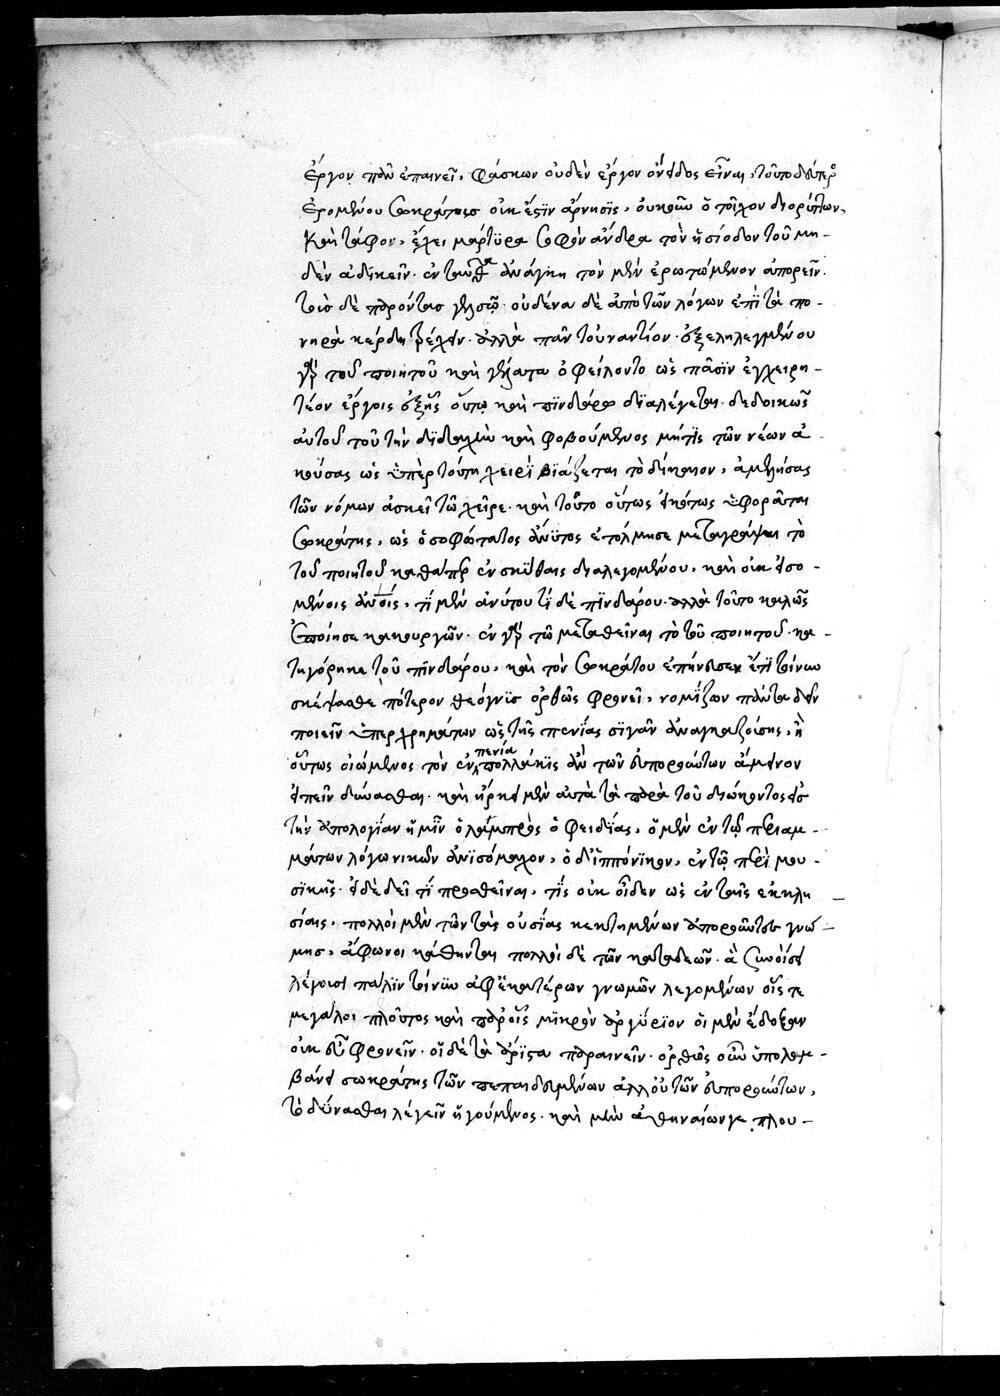 ἔργον πᾶν ἐπαινεῖ, φάσκων οὐδὲν ἔργον ὄνειδος εἶναι, τοῦτο δεύτερον
ἐρομένου Σωκράτους οὐκ ἔστιν ἄρνησις, οὐκοῦν ὁ τοῖχον διορύττων,
καὶ τάφον, ἔχει μάρτυρα σοφὸν ἄνδρα τὸν ἡσίοδον τοῦ μη-
δὲν ἀδικεῖν. ἐνταῦθα ἀνάγκη τὸν μὲν ἐρωτώμενον ἀπορεῖν.
τοὺς δὲ παρόντας γελᾶν. οὐδένα δὲ ἀπὸ τῶν λόγων ἐπὶ τὰ πο-
νηρὰ κέρδη τρέχειν. ἀλλὰ πᾶν τοὐναντίον. ἐξεληλεγμένου
γὰρ τοῦ ποιητοῦ καὶ γέλωτα ὀφείλοντο ὡς πᾶσιν ἐγχειρη-
τέον ἔργοις ἑξῆς οὕτω καὶ πινδάρω διαλέγεται. δεδοικὼς
αὐτοῦ τοῦ τὴν διδαχὴν καὶ φοβούμενος μήτις τῶν νέων ἀ
κούσας ὡς ὑπερτάτη χειρὶ βιάζεται τὸ δίκαιον, ἀμελήσας
τῶν νόμων ἀσκεῖ τὼ χεῖρε. καὶ τοῦτο οὕτως εἰκότως ἐφορᾶται
Σωκράτης, ὡς ὁ σοφώτατος ἄνυτος ἐτόλμησε μεταγράψαι τὸ
τοῦ ποιητοῦ καθάπερ ἐν σκύθαις διαλεγομένου, καὶ οὐκ εἰσο-
μένοις αὐτοῖς, τί μὲν ἀνύτου τί δὲ πινδάρου. ἀλλὰ τοῦτο καλῶς
ἐποίησε κακουργῶν. ἐν γὰρ τῶ μεταθεῖναι τὸ τοῦ ποιητοῦ. κα-
τηγόρηκε τοῦ πινδάρου, καὶ τὸν Σωκράτου ἐπήνεσεν ἔτι τοίνυν
σκέψασθε πότερον θέογνις ὀρθῶς φρονεῖ, νομίζων πάντα δεῖν
ποιεῖν ὑπὲρ χρημάτων ὡς τῆς πενίας σιγᾶν ἀναγκαζούσης, ἢ
οὗτος οἰόμενος τὸν ἐν πενία πολλάκις ἂν τῶν εὐπορούντων ἄμεινον
εἰπεῖν δύνασθαι. καὶ εἴρηκε μὲν αὐτὰ τὰ παρὰ τοῦ διώκοντος εἰς
τὴν ἀπολογίαν ἡμῖν ὁ λαμπρὸς ὁ φειδίας, ὁ μὲν ἐν τῶ πριαμ-
μάτων λόγω νικῶν ἀνισόμαχον, ὁ δ' ἱππόνικον, ἐν τῶ περὶ μου-
σικῆς. εἰ δὲ δεῖ τί προσθεῖναι, τίς οὐκ οἶδεν ὡς ἐν ταῖς ἐκκλη
σίαις, πολλοὶ μὲν τῶν τὰς οὐσίας κεκτημένων ἀποροῦντες γνώ-
μης, ἄφωνοι κάθηνται πολλοὶ δὲ τῶν καταδεῶν. ἃ συνοίσει
λέγουσι πάλιν τοίνυν ἀφ' ἑκατέρων γνωμῶν λεγομένων οἷς τε
μεγάλοι πλοῦτος καὶ παρ' οἷς μικρὸν ἀργύριον οἱ μὲν ἔδοξαν
οὐκ εὖ φρονεῖν. οἱ δὲ τὰ ἄριστα παραινεῖν. ὀρθῶς οὖν ὑπολαμ-
βάνει σωκράτης τῶν πεπαιδευμένων ἀλλ' οὐ τῶν εὐπορούντων,
τὸ δύνασθαι λέγειν ἡγούμενος. καὶ μὲν ἀθηναίων γε πλου-